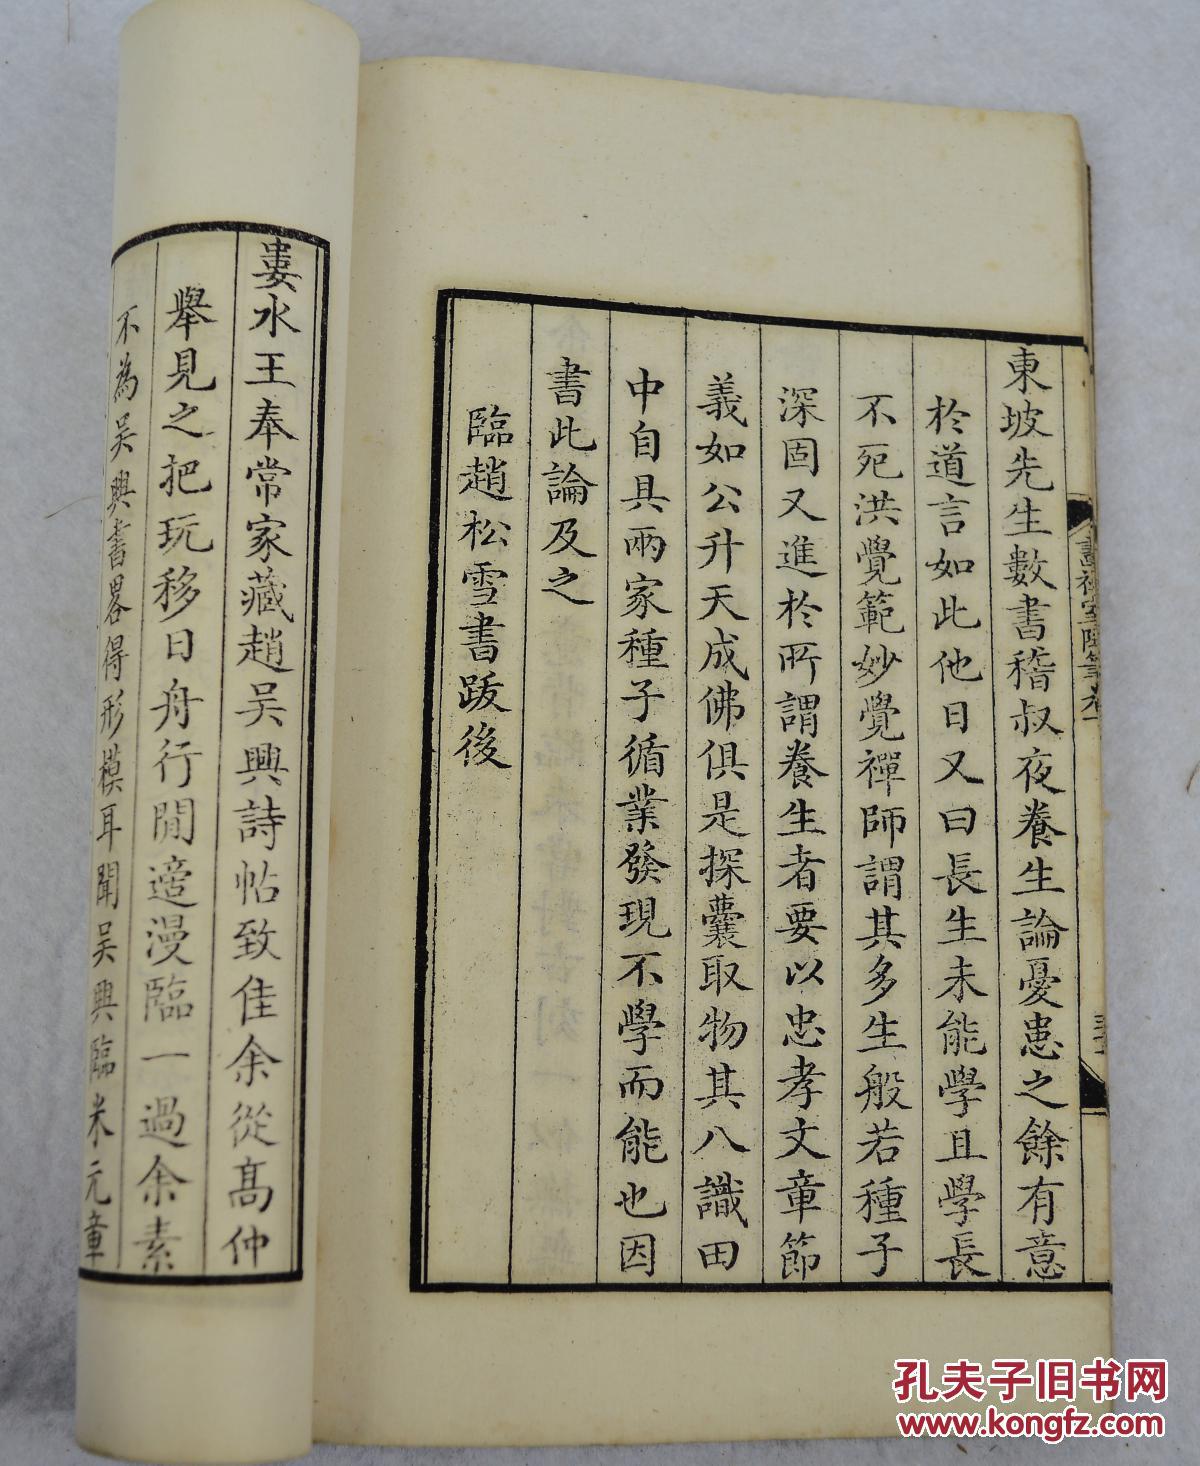 東坡先生數書嵇叔夜養生論憂患之餘有意
於道言如此他日又曰長生未能學且學長
不死洪覺範妙覺禪師謂其多生般若種子
深固又進於所謂養生者要以忠孝文章節
義如公升天成佛俱是探囊取物其八識田
中自具兩家種子循業發現不學而能也因
書此論及之
臨趙松雪書跋後
婁水王奉常家藏趙吴興詩帖致佳余從高仲
舉見之把玩移日舟行閒適漫臨一過余素
不為吴興書畧得形模耳聞吴興臨米元章
畫禪室隨筆卷一
孔夫子旧书网
www.kongfz.com